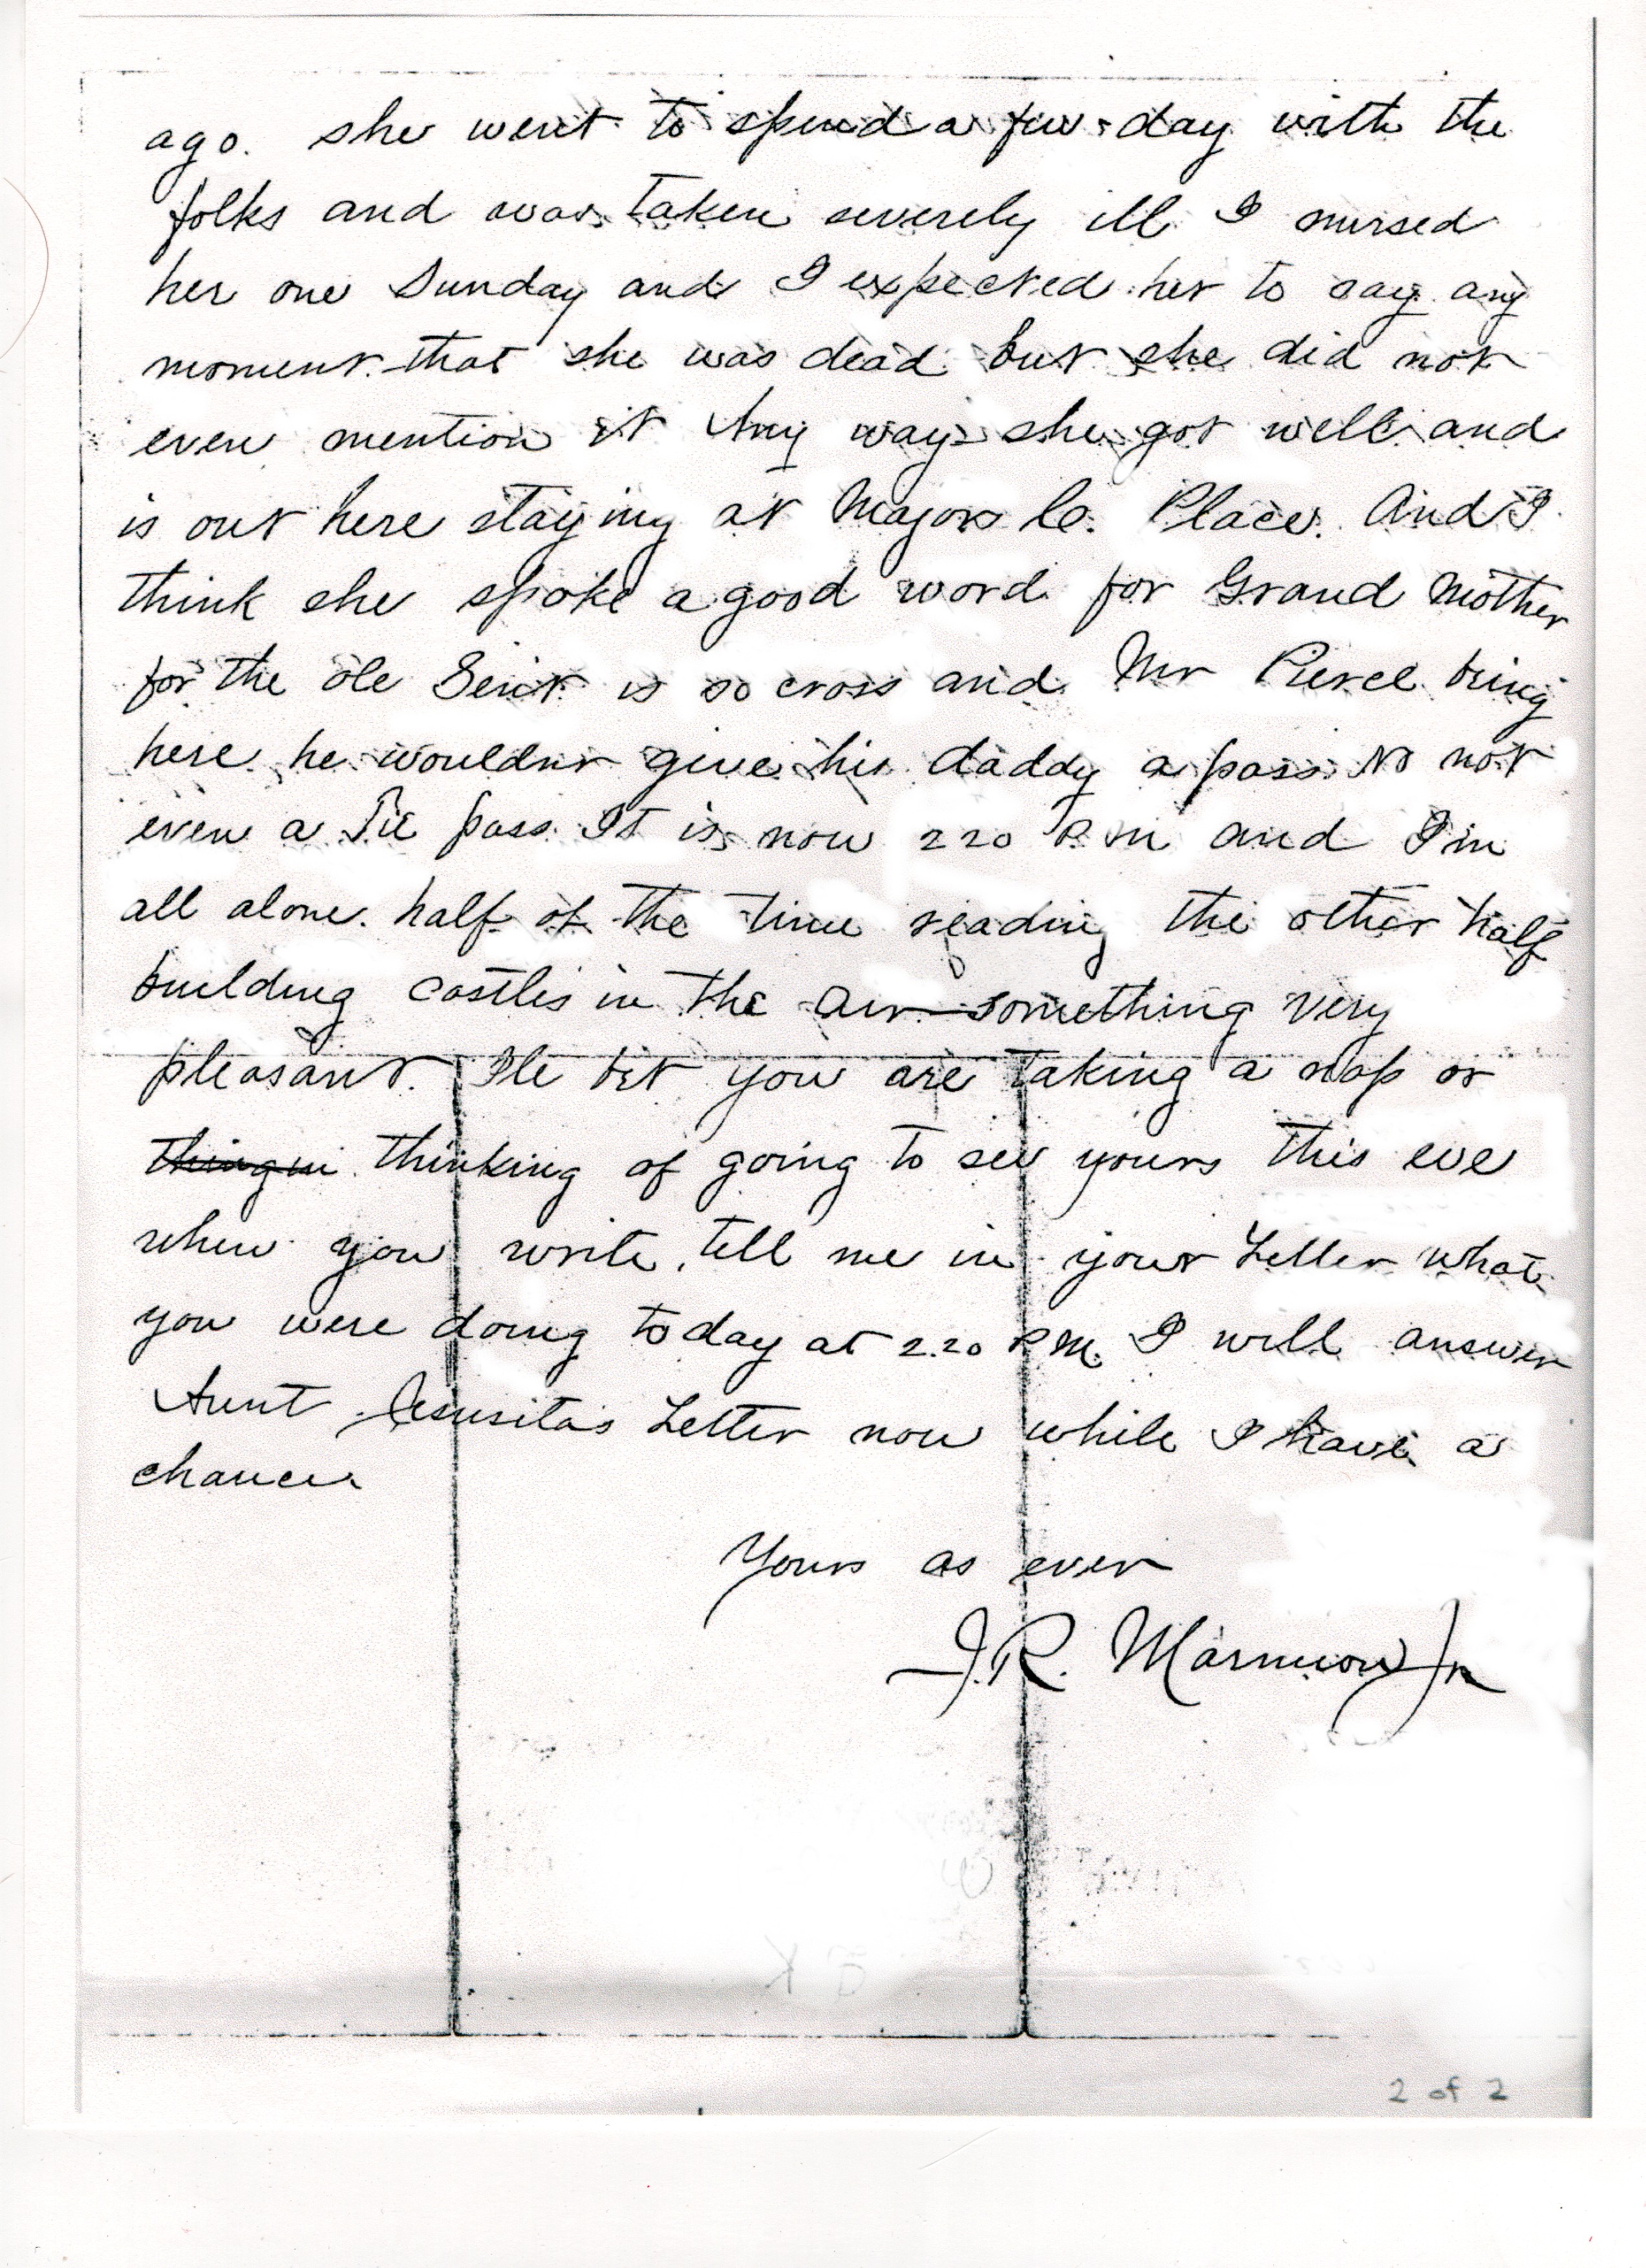 ago. she went to spend a few day with the
folks and was taken severely ill I nursed
her one Sunday and I expected her to say any
moment that she was dead but she did not
even mention it Any way she got well and
is out here staying at Majors Co. Place. And I
think she spoke a good word for Grand Mother
for the ole is so cross and Mr Pierce being
here he wouldnt give his daddy a pass no not
even a Tie pass. It is now 2 20 P M and I'm
all alone. half of the time reading the other half
building castles in the air something very
pleasant. Ile bet you are taking a nap or
thinking of going to see yours this eve
when you write, tell me in your Letter what
you were doing today at 2.20 P.M. I will answer
Aunt Jesusita's Letter now while I have a
chance
Yours as ever
J.R. Jr
2 of 2